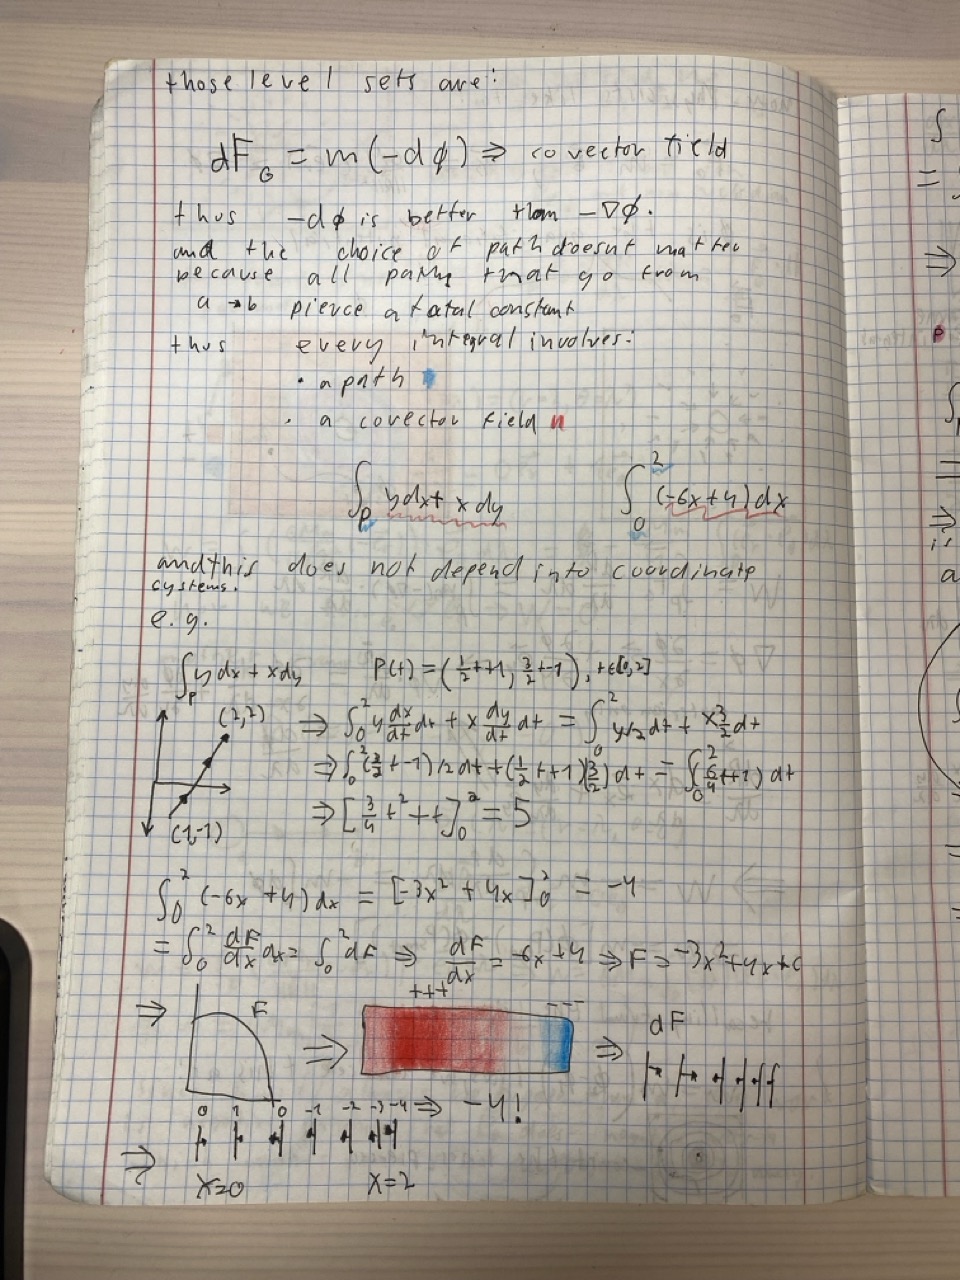 those level sets are:
dF_G = m(-dϕ) ⇒ covector field
thus -dϕ is better than -∇ϕ.
and the choice of path doesnt matter
because all paths that go from
a → b pierce a total constant
thus every integral involves:
· a path
· a covector field
∫_P ydx + x dy ∫_0^2 (-6x+4) dx
and this does not depend into coordinate
systems.
e.g.
∫_P y dx + x dy P(t) = (1/2 t+1, 3/2 t-1), t∈[0,2]
(2,2) ⇒ ∫_0^2 y dx/dt dt + x dy/dt dt = ∫_0^2 y 1/2 dt + x 3/2 dt
⇒ ∫_0^2 (3/2 t-1) 1/2 dt + (1/2 t+1)(3/2) dt = ∫_0^2 (6/4 t+1) dt
(1,-1) ⇒ [3/4 t² + t]_0^2 = 5
∫_0^2 (-6x+4) dx = [-3x² + 4x]_0^2 = -4
= ∫_0^2 dF/dx dx = ∫_0^2 dF ⇒ dF/dx = -6x+4 ⇒ F = -3x²+4x+c
+++ ---
⇒ F ⇒ ⇒ dF
0 1 0 -1 -2 -3 -4 ⇒ -4!
⇒
x=0 x=2